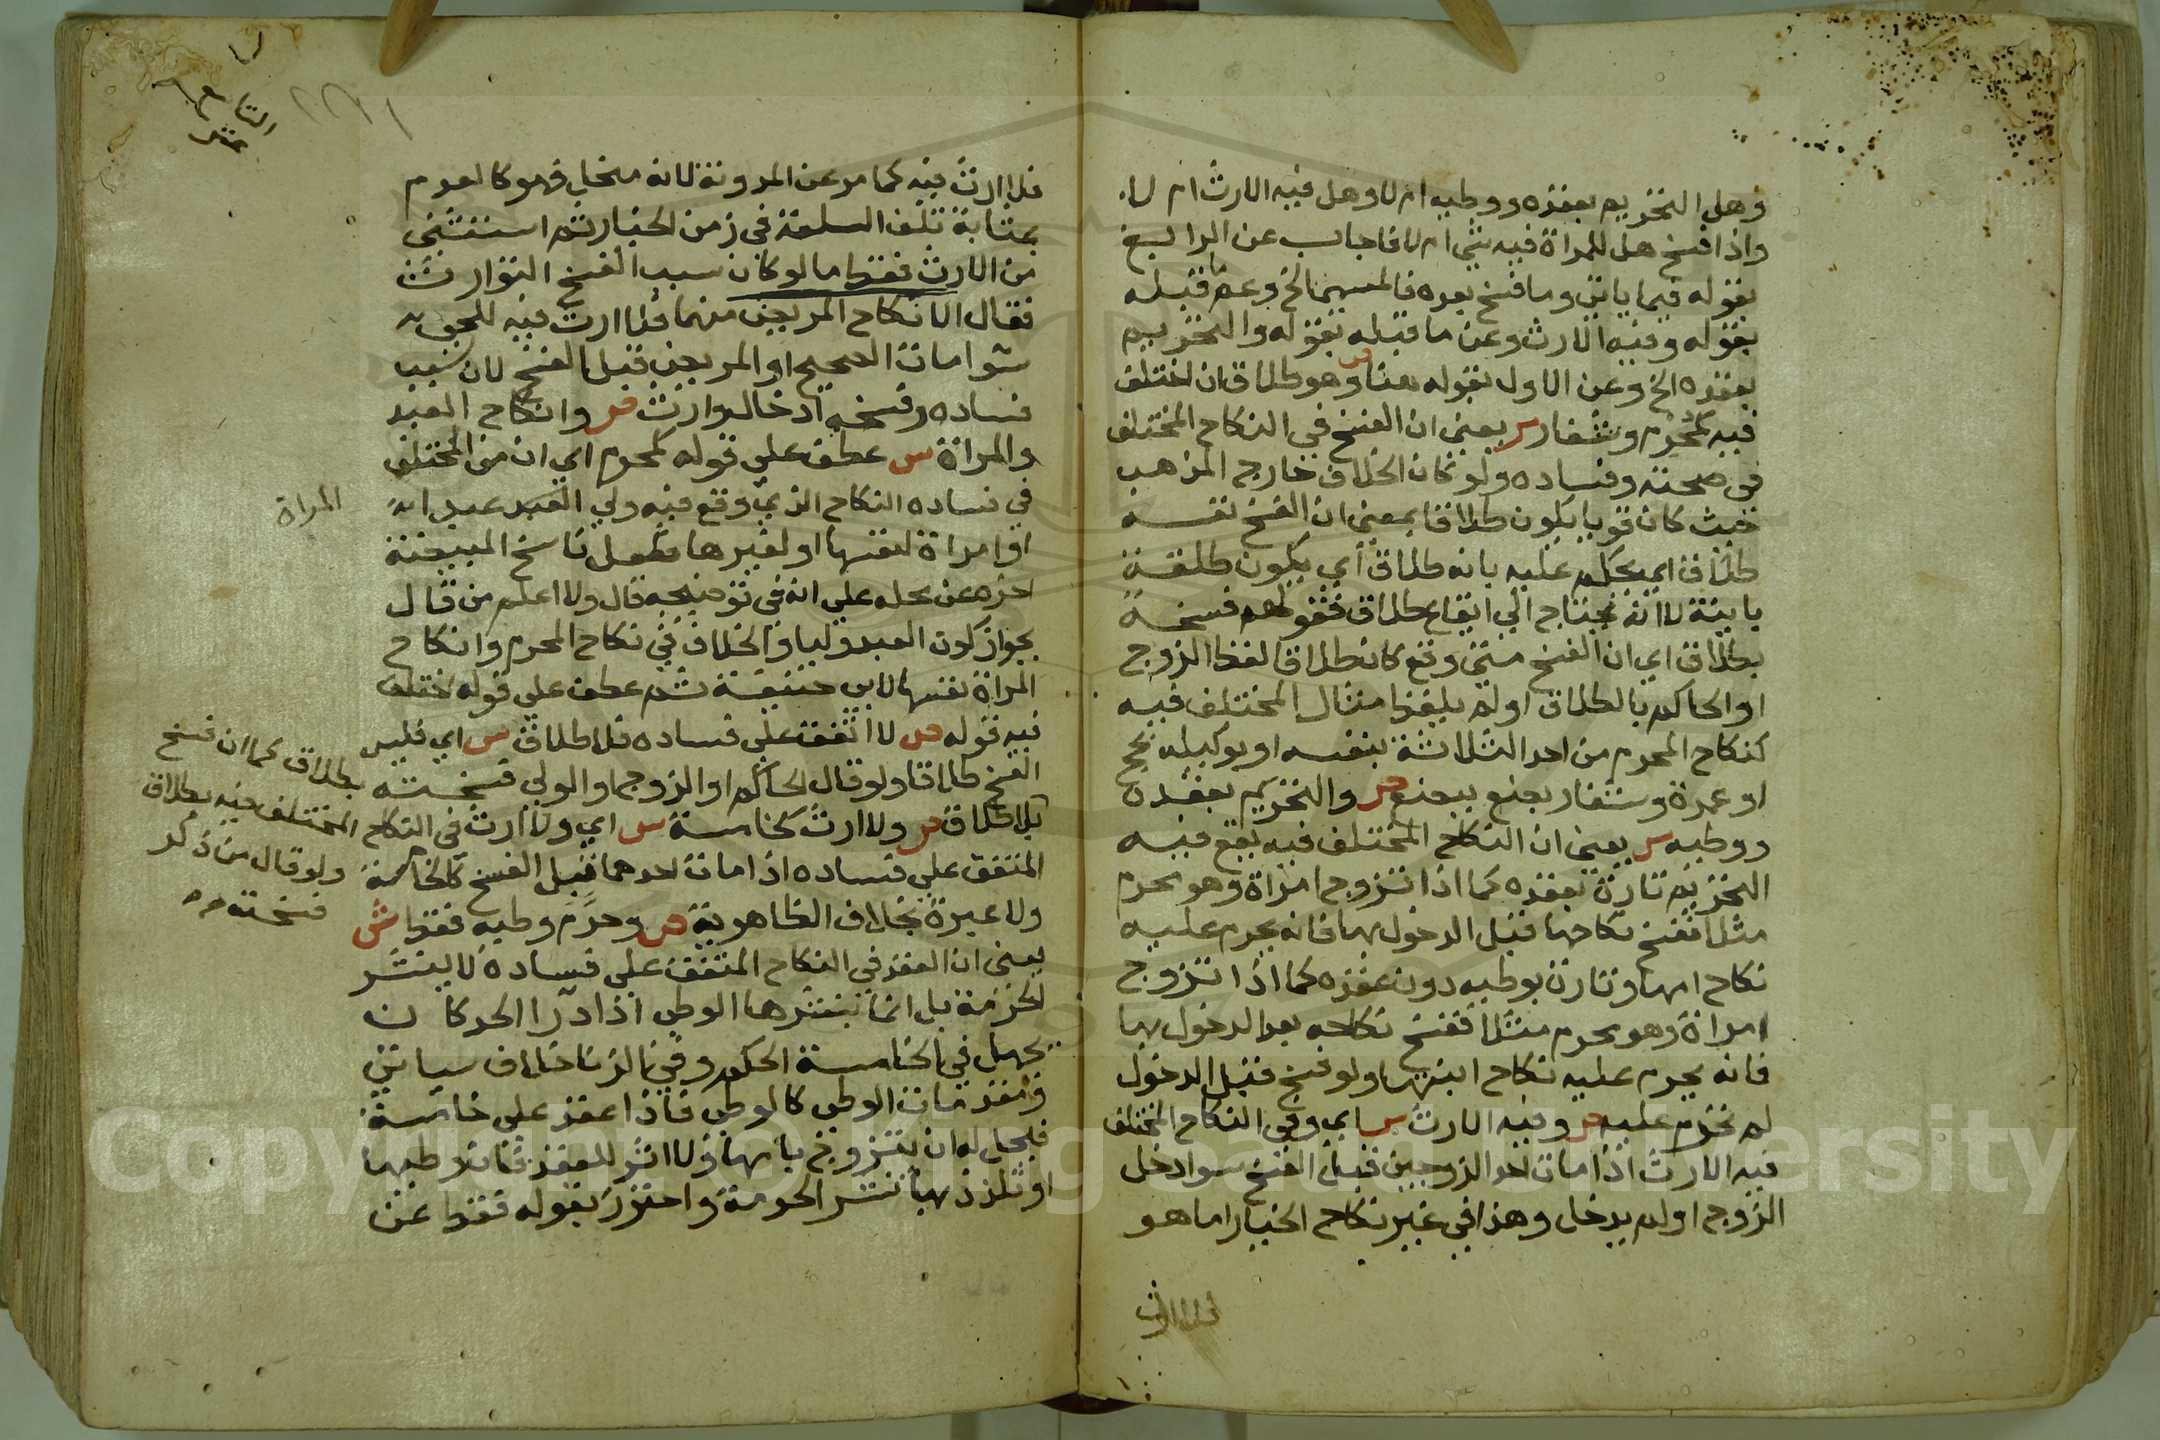 وهل التحريم بعقده ووطيه ام لا وهل فيه الارث ام لا
واذا فسخ هل للمراة فيه شي ام لا فاجاب عن الرابع
بقوله فيما ياتي وما فسخ بعده فالمسمى الخ وعما قبله
بقوله وفيه الارث وعن ما قبله بقوله والتحريم
بعقده الخ وعن الاول بقوله هنا ص وهو طلاق ان اختلف
فيه كمحرم وشغار س يعني ان الفسخ في النكاح المختلف
في صحته وفساده ولو كان الخلاف خارج المذهب
حيث كان قويا يكون طلاقا بمعنى ان الفسخ نفسه
طلاق اي يحكم عليه بانه طلاق اي يكون طلقة
باينة لا انه يحتاج الي ايقاع طلاق فقولهم فسخه
بطلاق اي ان الفسخ متي وقع كان طلاقا لفظ الزوج
او الحاكم بالطلاق او لم يلفظا مثال المختلف فيه
كنكاح المحرم من احد الثلاثة بنفسه او بوكيله بحج
او عمرة وشغار بضع ببضع ص والتحريم بعقده
ووطيه س يعني ان النكاح المختلف فيه يقع فيه
التحريم تارة بعقده كما اذا تزوج امراة وهو محرم
مثلا ففسخ نكاحها قبل الدخول بها فانه يحرم عليه
نكاح امها وتارة بوطيه دون عقده كما اذا تزوج
امراة وهو محرم مثلا ففسخ نكاحه بعد الدخول بها
فانه يحرم عليه نكاح ابنتها ولو فسخ قبل الدخول
لم تحرم عليه ص وفيه الارث س اي وفي النكاح المختلف
فيه الارث اذا مات احد الزوجين قبل الفسخ سوا دخل
الزوج او لم يدخل وهذا في غير نكاح الخيار اما هو
فلا ارث
فلا ارث فيه كما مر عن المدونة لانه منحل فهو كالعدم
بمثابة تلف السلعة في زمن الخيار ثم استثنى
من الارث فقط ما لو كان سبب الفسخ التوارث
فقال الا نكاح المريض منهما فلا ارث فيه للحوق به
سوا مات الصحيح او المريض قبل الفسخ لان سبب
فساده وفسخه ادخال وارث ص وانكاح العبد
والمراة س عطف علي قوله كمحرم اي ان من المختلف
في فساده النكاح الذي وقع فيه ولي العقد عبد ابنه
المراة
او امراة لنفسها او لغيرها فلعل ناسخ المبيضة
اخره عن محله علي انه في توضيحه قال ولا اعلم من قال
بجواز كون العبد وليا والخلاف في نكاح المحرم وانكاح
المراة نفسها لابي حنيفة ثم عطف علي قوله اختلف
فيه قوله ص لا اتفق علي فساده فلا طلاق س اي فليس
الفسخ طلاقا ولو قال الحاكم او الزوج او الولي فسخته
بلا طلاق ص ولا ارث كخامسة س اي ولا ارث في النكاح
المتفق علي فساده اذا مات احدهما قبل الفسخ كالخامسة
ولا عبرة بخلاف الظاهرية ص وحرم وطيه فقط ش
يعني ان العقد في النكاح المتفق علي فساده لا ينشر
الحرمة بل انما ينشرها الوطي اذا درا الحد كان
يجهل في الخامسة الحكم وفي الزنا خلاف سياتي
ومقدمات الوطي كالوطي فاذا عقد علي خامسة
فيحل له ان يتزوج بامها ولا اثر للعقد فان وطيها
او تلذذ بها نشر الحرمة واحترز بقوله فقط عن
بطلاق كما ان فسخ
المختلف فيه بطلاق
ولو قال من ذكر
فسخته
Copyright © King Saud University